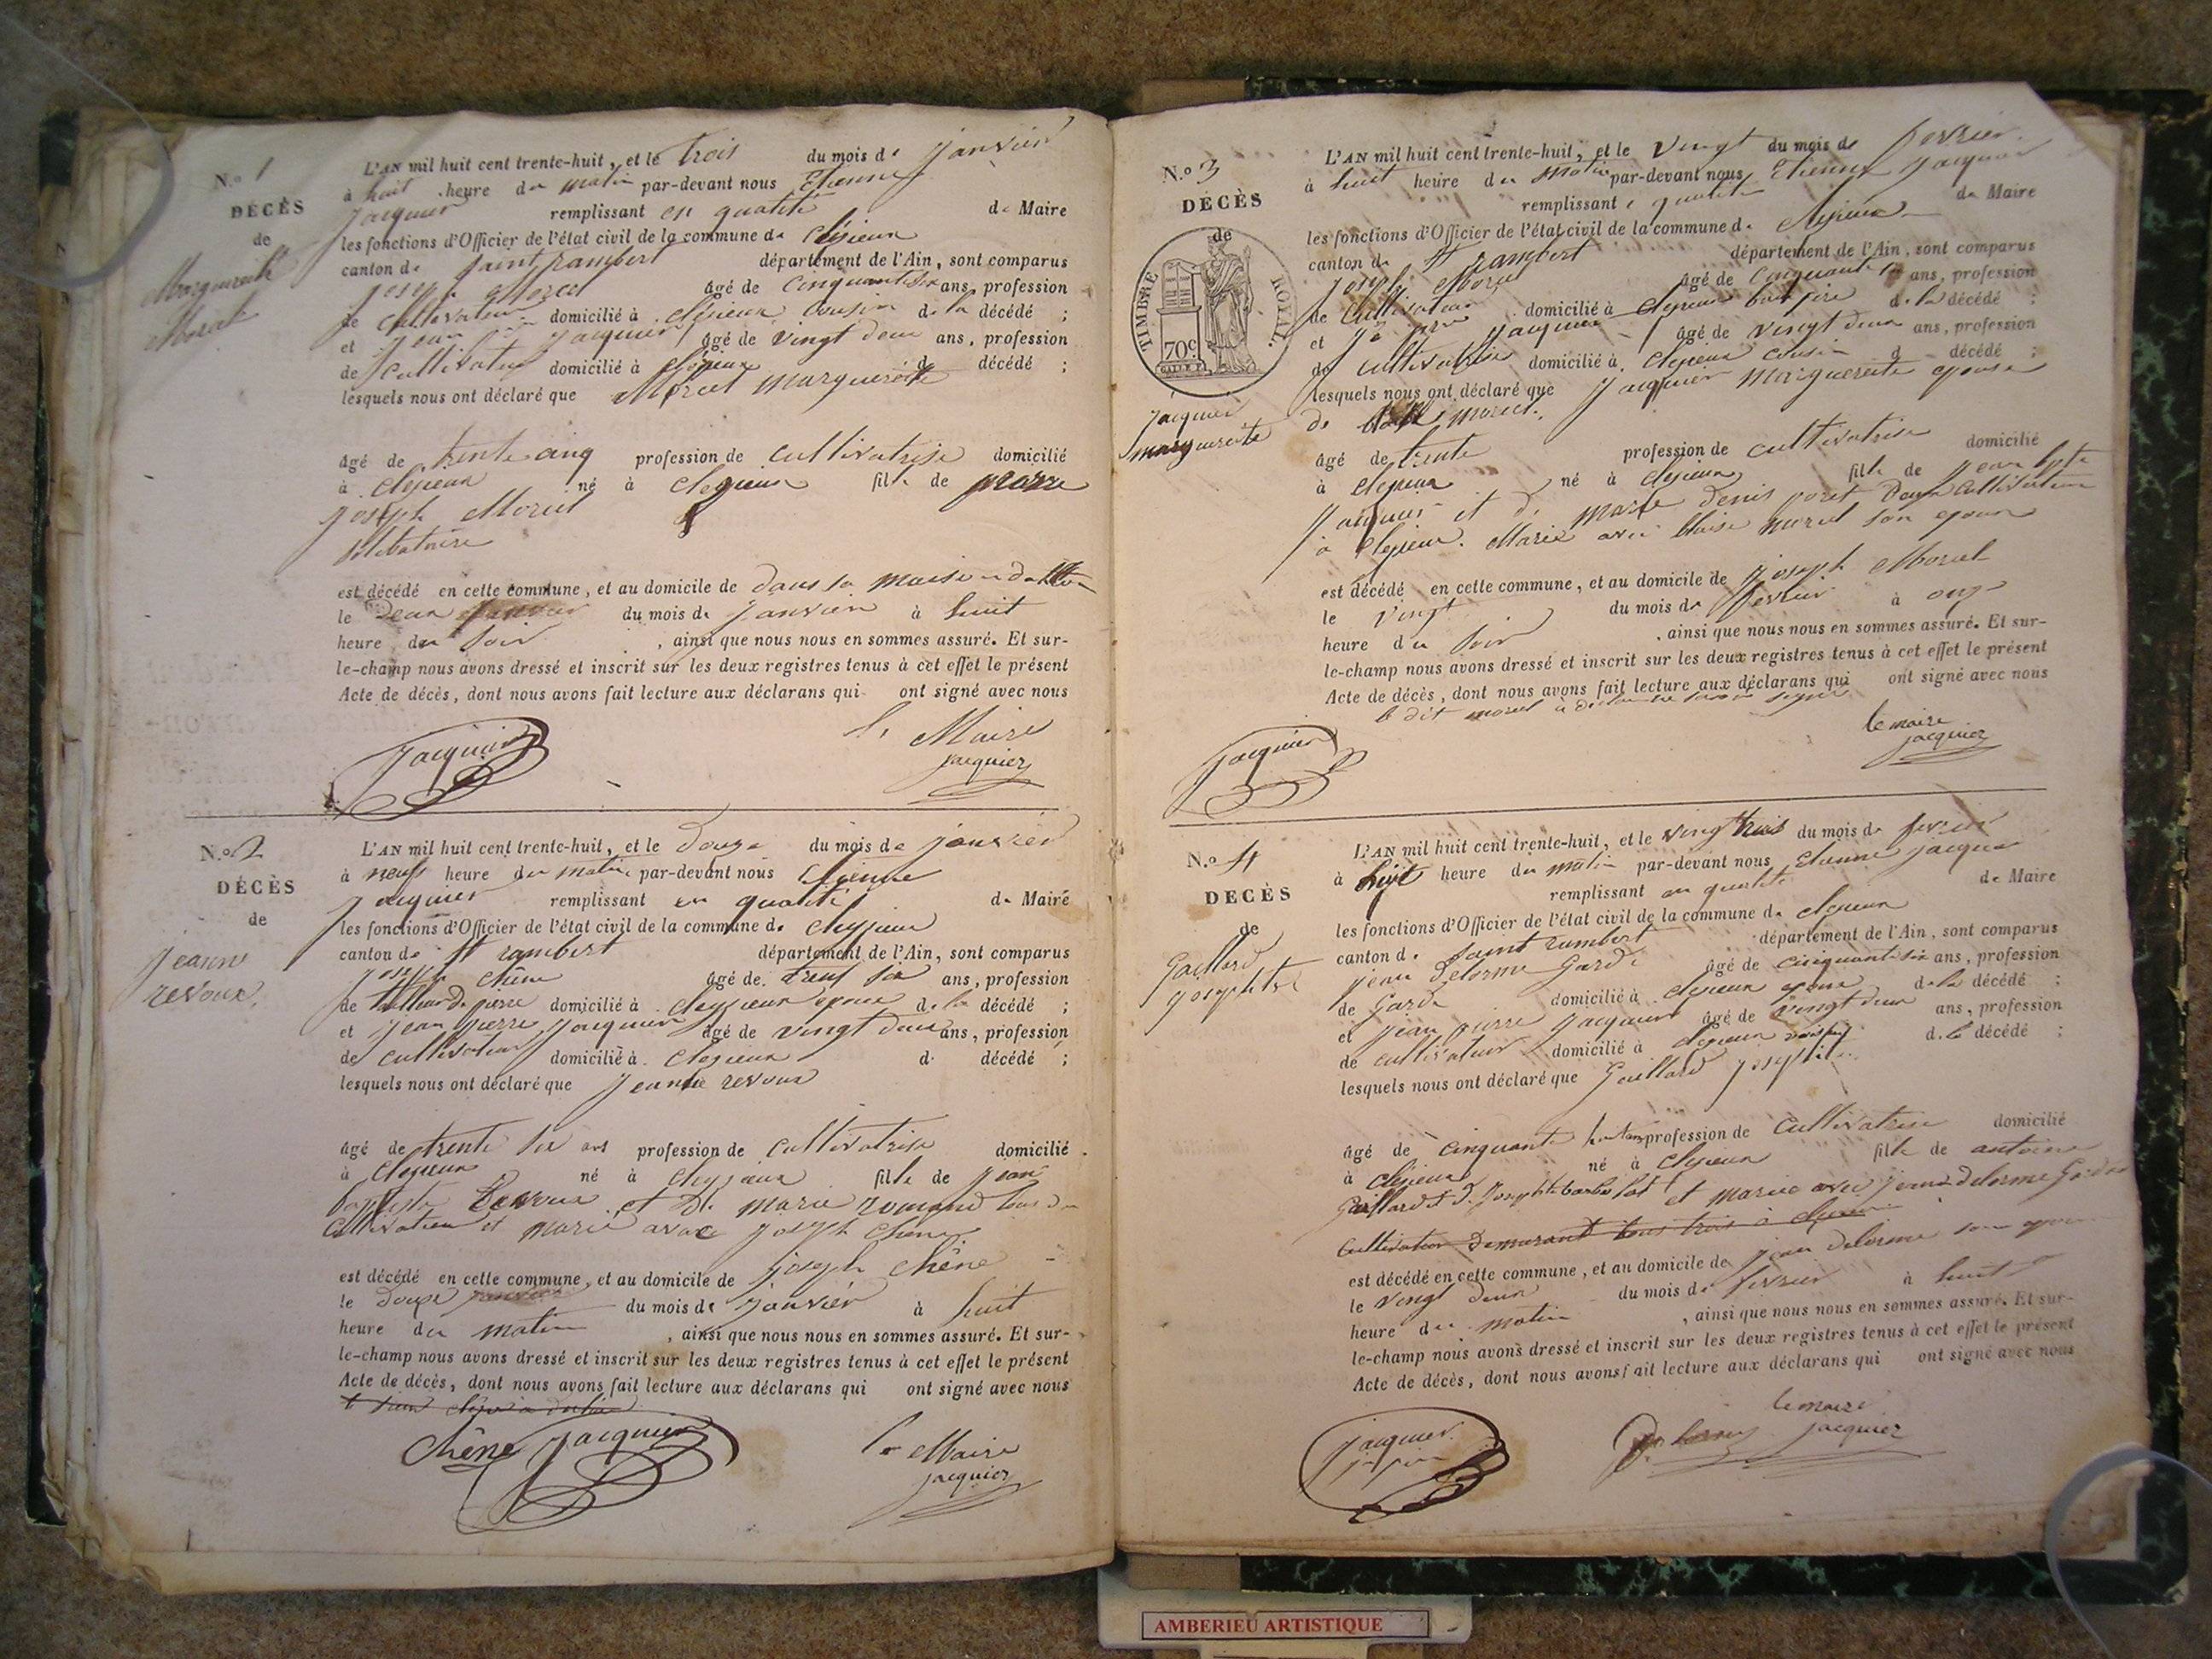 N.o 1
DÉCÈS
de
Marguerite
Morel
L'AN mil huit cent trente-huit, et le trois du mois de janvier
à huit heure du matin par-devant nous Etienne
Jacquier remplissant en qualité de Maire
les fonctions d'Officier de l'état civil de la commune de Cleyzieux
canton de Saint rambert département de l'Ain, sont comparus
Joseph Morel âgé de cinquante six ans, profession
de cultivateur domicilié à Clezieux cousin de la décédé ;
et Jean Jacquier âgé de vingt deux ans, profession
de Cultivateur domicilié à Clezieux d décédé ;
lesquels nous ont déclaré que Morel marguerite
âgé de trente cinq profession de cultivatrise domicilié
à Clezieux né à Clezieux fille de
joseph Morel
Selibataire
est décédé en cette commune, et au domicile de dans sa maison
le deux du mois de janvier à huit
heure du soir , ainsi que nous nous en sommes assuré. Et sur-
le-champ nous avons dressé et inscrit sur les deux registres tenus à cet effet le présent
Acte de décès, dont nous avons fait lecture aux déclarans qui ont signé avec nous
Jacquier le Maire
jacquier
N.o 2
DÉCÈS
de
jeanne
revoux
L'AN mil huit cent trente-huit, et le douze du mois de janvier
à neuf heure du matin par-devant nous Etienne
Jacquier remplissant en qualité de Maire
les fonctions d'Officier de l'état civil de la commune de cleyzieux
canton de St rambert département de l'Ain, sont comparus
joseph chêne âgé de trent six ans, profession
de tailleur de pierre domicilié à cleyzieux epoux de la décédé ;
et jean pierre jacquier âgé de vingt deux ans, profession
de cultivateur domicilié à Clezieux d décédé ;
lesquels nous ont déclaré que jeanne revoux
âgé de trente six ans profession de cultivatrise domicilié
à Clezieux né à cleyzieux fille de jean
baptiste Revoux et de marie romand
cultivateur et marié avec joseph chene
est décédé en cette commune, et au domicile de joseph chêne
le douze du mois de janvier à huit
heure du matin , ainsi que nous nous en sommes assuré. Et sur-
le-champ nous avons dressé et inscrit sur les deux registres tenus à cet effet le présent
Acte de décès, dont nous avons fait lecture aux déclarans qui ont signé avec nous
chêne jacquier le Maire
jacquier
N.o 3
DÉCÈS
de
TIMBRE ROYAL.
70c
jacquier
marguerite
L'AN mil huit cent trente-huit, et le vingt du mois de fevrier
à huit heure du matin par-devant nous Etienne jacquier
remplissant en qualité de Maire
les fonctions d'Officier de l'état civil de la commune de clezieux
canton de St rambert département de l'Ain, sont comparus
joseph Morel âgé de cinquante ans, profession
de cultivateur domicilié à clezieux beau pire de la décédé ;
et jn pre jacquier âgé de vingt deux ans, profession
de cultivateur domicilié à clezieux cousin d décédé ;
lesquels nous ont déclaré que jacquier marguerite epouse
de morel
âgé de trente profession de cultivatrise domicilié
à clezieux né à clezieux fille de jean bpte
jacquier et de marie denis cultivateur
à clezieux. Marié avec blaise morel son epoux
est décédé en cette commune, et au domicile de joseph Morel
le vingt du mois de fevrier à onze
heure du soir , ainsi que nous nous en sommes assuré. Et sur-
le-champ nous avons dressé et inscrit sur les deux registres tenus à cet effet le présent
Acte de décès, dont nous avons fait lecture aux déclarans qui ont signé avec nous
le dit morel a déclaré ne savoir signé
jacquier le maire
jacquier
N.o 4
DECÈS
de
Gaillard
josephte
L'AN mil huit cent trente-huit, et le vingt trois du mois de fevrier
à huit heure du matin par-devant nous etienne jacquier
remplissant en qualité de Maire
les fonctions d'Officier de l'état civil de la commune de clezieux
canton de saint rambert département de l'Ain, sont comparus
jean delorme garde âgé de cinquante six ans, profession
de garde domicilié à clezieux epoux de la décédé ;
et jean pierre jacquier âgé de vingt deux ans, profession
de cultivateur domicilié à clezieux voisin de la décédé ;
lesquels nous ont déclaré que Gaillard josephte
âgé de cinquante huit ans profession de cultivatrise domicilié
à clezieux né à clezieux fille de antoine
Gaillard et de josephte et mariée avec jean delorme
cultivateur demeurant tous trois à clezieux
est décédé en cette commune, et au domicile de jean delorme son epoux
le vingt deux du mois de fevrier à huit
heure du matin , ainsi que nous nous en sommes assuré. Et sur-
le-champ nous avons dressé et inscrit sur les deux registres tenus à cet effet le présent
Acte de décès, dont nous avons fait lecture aux déclarans qui ont signé avec nous
jacquier Delorme le maire
jacquier
AMBERIEU ARTISTIQUE